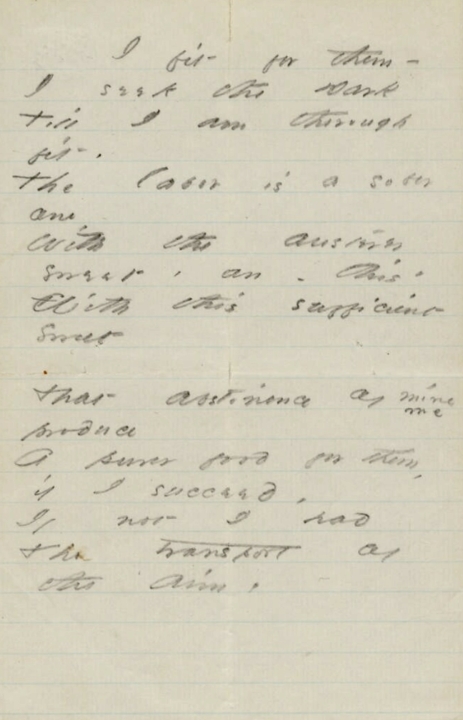 I fit for them –
I seek the Dark
till I am thorough
fit.
the labor is a sober
one
With the austerer
sweet . this.
With this sufficient
sweet
that abstinence of mine
me
produce
A purer food for them,
if I succeed,
If not I had
the transport of
the Aim.